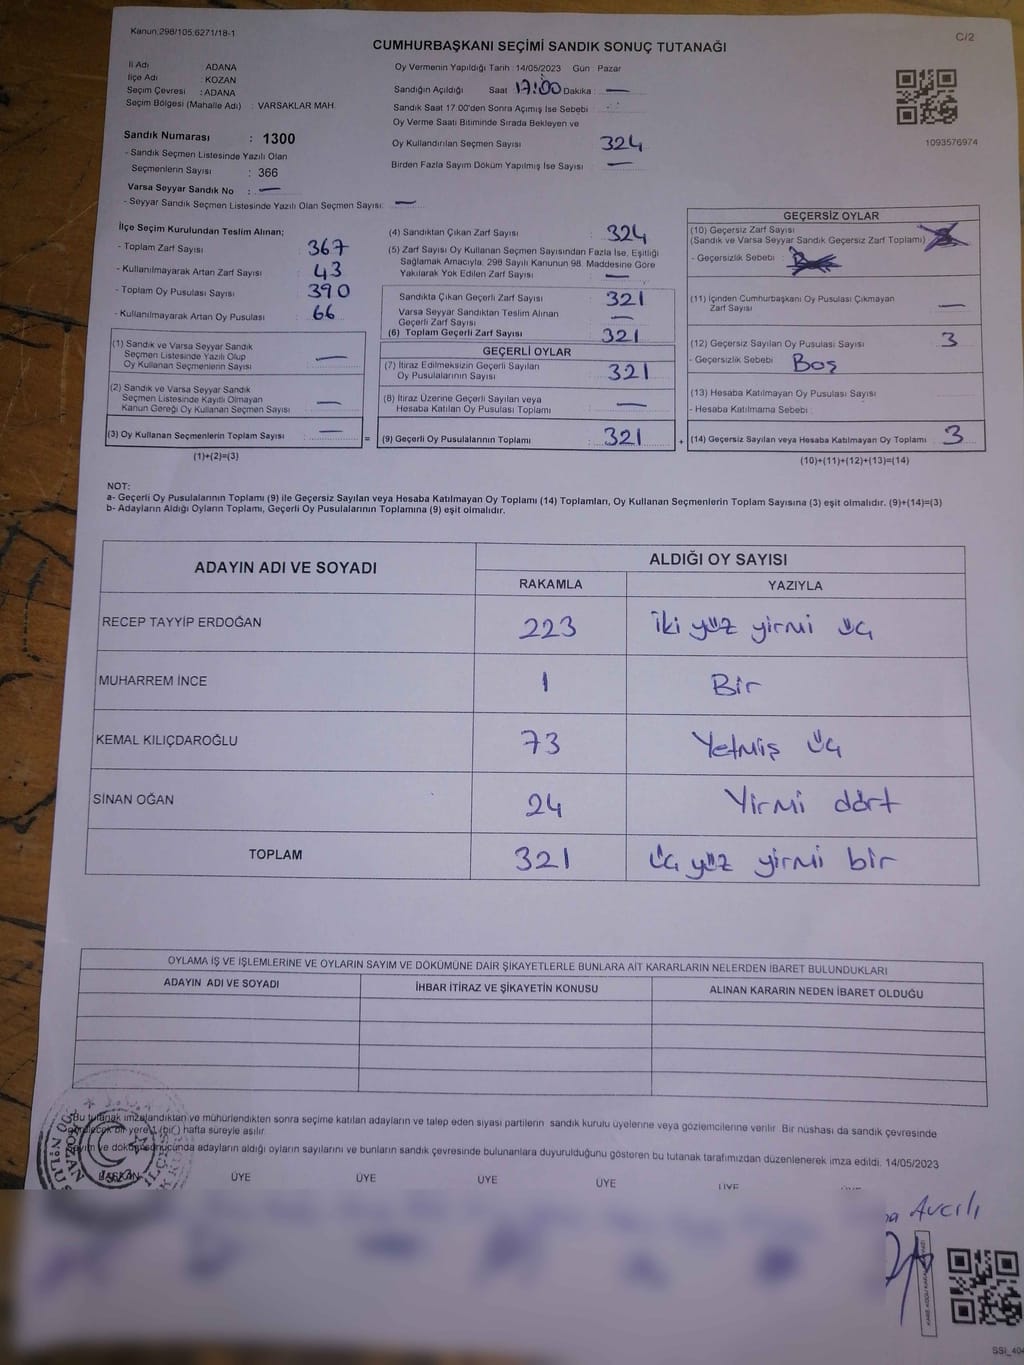 Kanun.298/105,6271/18-1
C/2
CUMHURBAŞKANI SEÇİMİ SANDIK SONUÇ TUTANAĞI
İl Adı ADANA
İlçe Adı KOZAN
Seçim Çevresi : ADANA
Seçim Bölgesi (Mahalle Adı) : VARSAKLAR MAH.
Sandık Numarası : 1300
- Sandık Seçmen Listesinde Yazılı Olan
Seçmenlerin Sayısı : 366
Varsa Seyyar Sandık No : —
- Seyyar Sandık Seçmen Listesinde Yazılı Olan Seçmen Sayısı: —
Oy Vermenin Yapıldığı Tarih : 14/05/2023 Gün : Pazar
Sandığın Açıldığı Saat 17:00 Dakika : —
Sandık Saat 17.00'den Sonra Açımış İse Sebebi :
Oy Verme Saati Bitiminde Sırada Bekleyen ve
Oy Kullandırılan Seçmen Sayısı : 324
Birden Fazla Sayım Döküm Yapılmış İse Sayısı : —
1093576974
İlçe Seçim Kurulundan Teslim Alınan;
- Toplam Zarf Sayısı : 367
- Kullanılmayarak Artan Zarf Sayısı : 43
- Toplam Oy Pusulası Sayısı : 390
- Kullanılmayarak Artan Oy Pusulası : 66
(1) Sandık ve Varsa Seyyar Sandık
Seçmen Listesinde Yazılı Olup
Oy Kullanan Seçmenlerin Sayısı : —
(2) Sandık ve Varsa Seyyar Sandık
Seçmen Listesinde Kayıtlı Olmayan
Kanun Gereği Oy Kullanan Seçmen Sayısı : —
(3) Oy Kullanan Seçmenlerin Toplam Sayısı : —
(1)+(2)=(3)
(4) Sandıktan Çıkan Zarf Sayısı : 324
(5) Zarf Sayısı Oy Kullanan Seçmen Sayısından Fazla İse, Eşitliği
Sağlamak Amacıyla; 298 Sayılı Kanunun 98. Maddesine Göre
Yakılarak Yok Edilen Zarf Sayısı : —
Sandıkta Çıkan Geçerli Zarf Sayısı : 321
Varsa Seyyar Sandıktan Teslim Alınan
Geçerli Zarf Sayısı : —
(6) Toplam Geçerli Zarf Sayısı : 321
GEÇERLİ OYLAR
(7) İtiraz Edilmeksizin Geçerli Sayılan
Oy Pusulalarının Sayısı : 321
(8) İtiraz Üzerine Geçerli Sayılan veya
Hesaba Katılan Oy Pusulası Toplamı : —
= (9) Geçerli Oy Pusulalarının Toplamı : 321 +
GEÇERSİZ OYLAR
(10) Geçersiz Zarf Sayısı
(Sandık ve Varsa Seyyar Sandık Geçersiz Zarf Toplamı) :
- Geçersizlik Sebebi :
(11) İçinden Cumhurbaşkanı Oy Pusulası Çıkmayan
Zarf Sayısı : —
(12) Geçersiz Sayılan Oy Pusulası Sayısı : 3
- Geçersizlik Sebebi : Boş
(13) Hesaba Katılmayan Oy Pusulası Sayısı :
- Hesaba Katılmama Sebebi :
(14) Geçersiz Sayılan veya Hesaba Katılmayan Oy Toplamı : 3
(10)+(11)+(12)+(13)=(14)
NOT:
a- Geçerli Oy Pusulalarının Toplamı (9) ile Geçersiz Sayılan veya Hesaba Katılmayan Oy Toplamı (14) Toplamları, Oy Kullanan Seçmenlerin Toplam Sayısına (3) eşit olmalıdır. (9)+(14)=(3)
b- Adayların Aldığı Oyların Toplamı, Geçerli Oy Pusulalarının Toplamına (9) eşit olmalıdır.
ADAYIN ADI VE SOYADI ALDIĞI OY SAYISI
RAKAMLA YAZIYLA
RECEP TAYYİP ERDOĞAN 223 iki yüz yirmi üç
MUHARREM İNCE 1 Bir
KEMAL KILIÇDAROĞLU 73 Yetmiş üç
SİNAN OĞAN 24 Yirmi dört
TOPLAM 321 üç yüz yirmi bir
OYLAMA İŞ VE İŞLEMLERİNE VE OYLARIN SAYIM VE DÖKÜMÜNE DAİR ŞİKAYETLERLE BUNLARA AİT KARARLARIN NELERDEN İBARET BULUNDUKLARI
ADAYIN ADI VE SOYADI İHBAR İTİRAZ VE ŞİKAYETİN KONUSU ALINAN KARARIN NEDEN İBARET OLDUĞU
Bu tutanak imzalandıktan ve mühürlendikten sonra seçime katılan adayların ve talep eden siyasi partilerin sandık kurulu üyelerine veya gözlemcilerine verilir. Bir nüshası da sandık çevresinde
bir yere 1 (bir) hafta süreyle asılır.
ve sonucunda adayların aldığı oyların sayılarını ve bunların sandık çevresinde bulunanlara duyurulduğunu gösteren bu tutanak tarafımızdan düzenlenerek imza edildi. 14/05/2023
BAŞKAN ÜYE ÜYE ÜYE ÜYE ÜYE
Avcılı